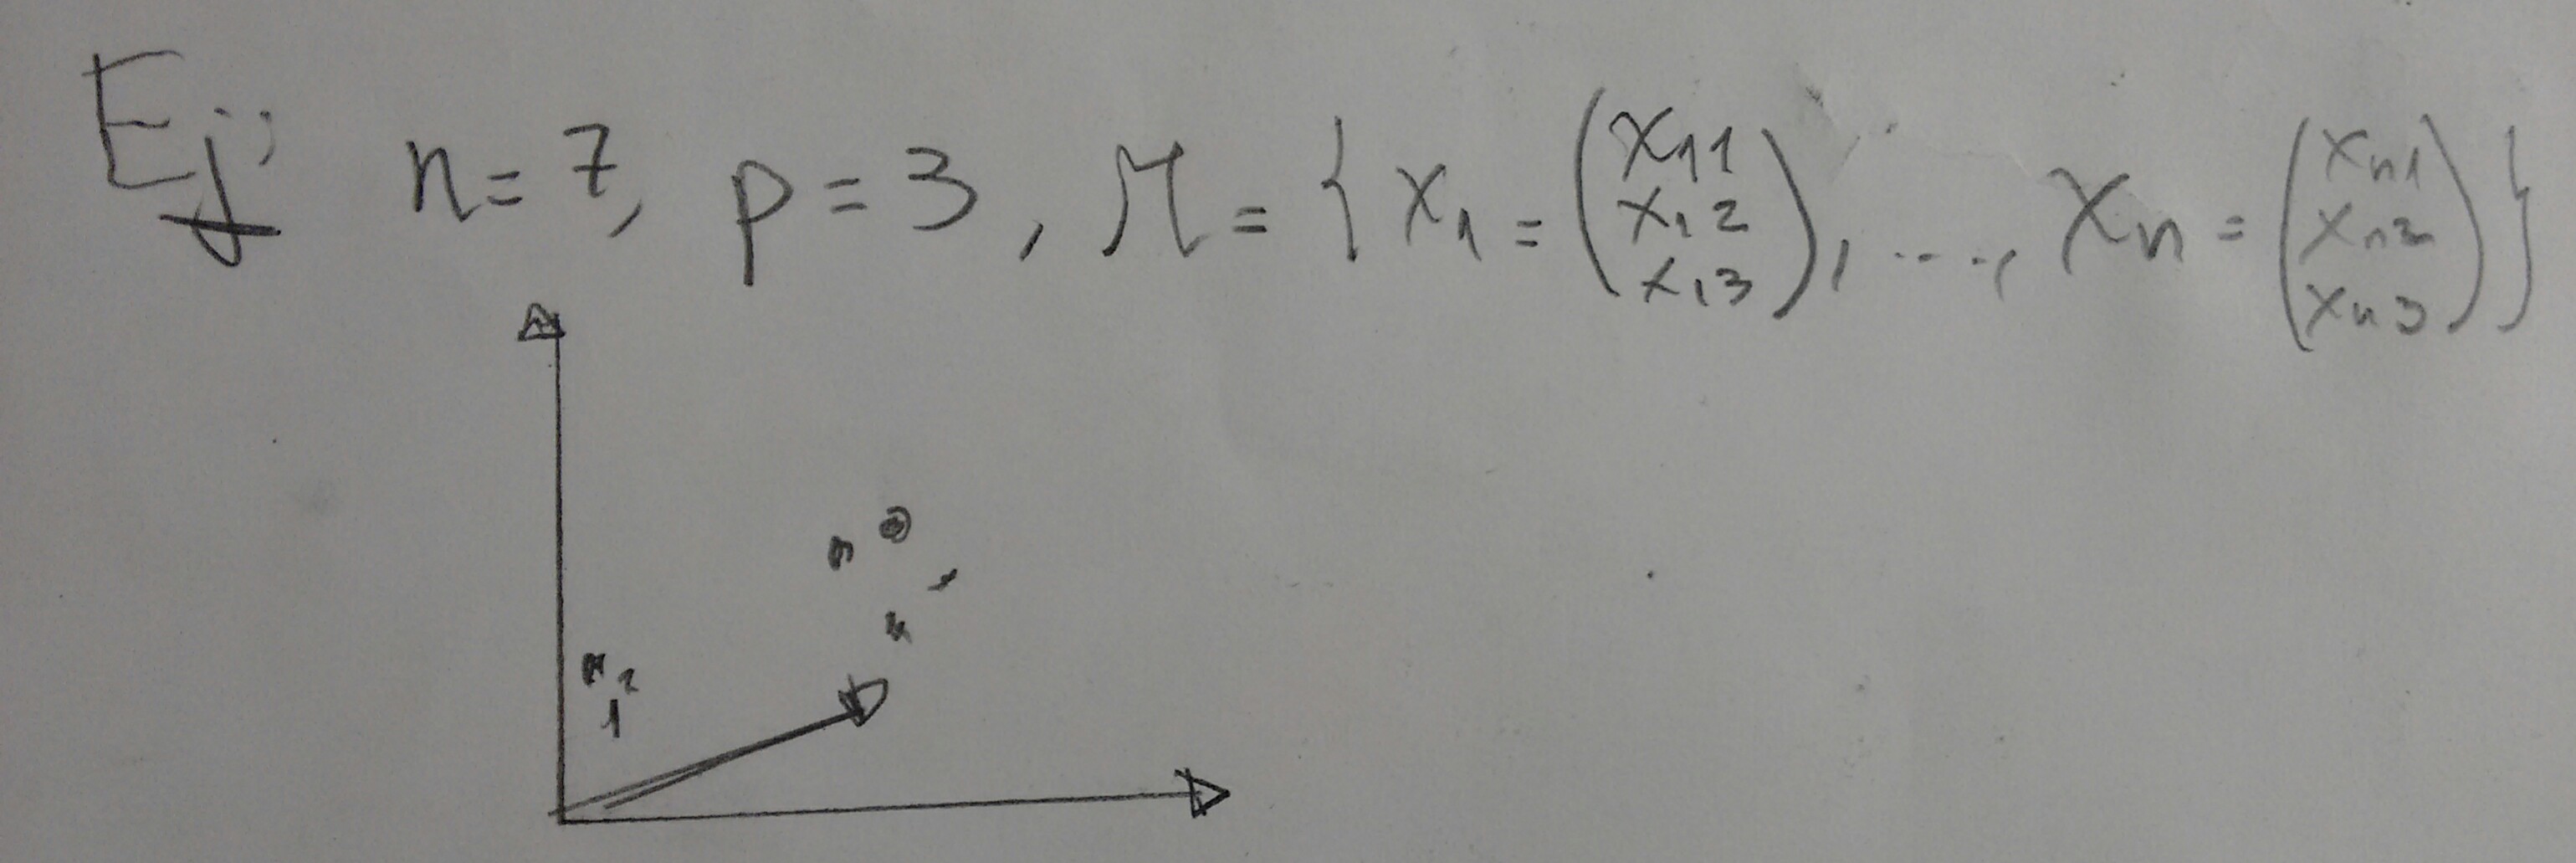 Ej: n=7, p=3, M = { x₁ = (x₁₁ x₁₂ x₁₃), ...., xₙ = (xₙ₁ xₙ₂ xₙ₃) }